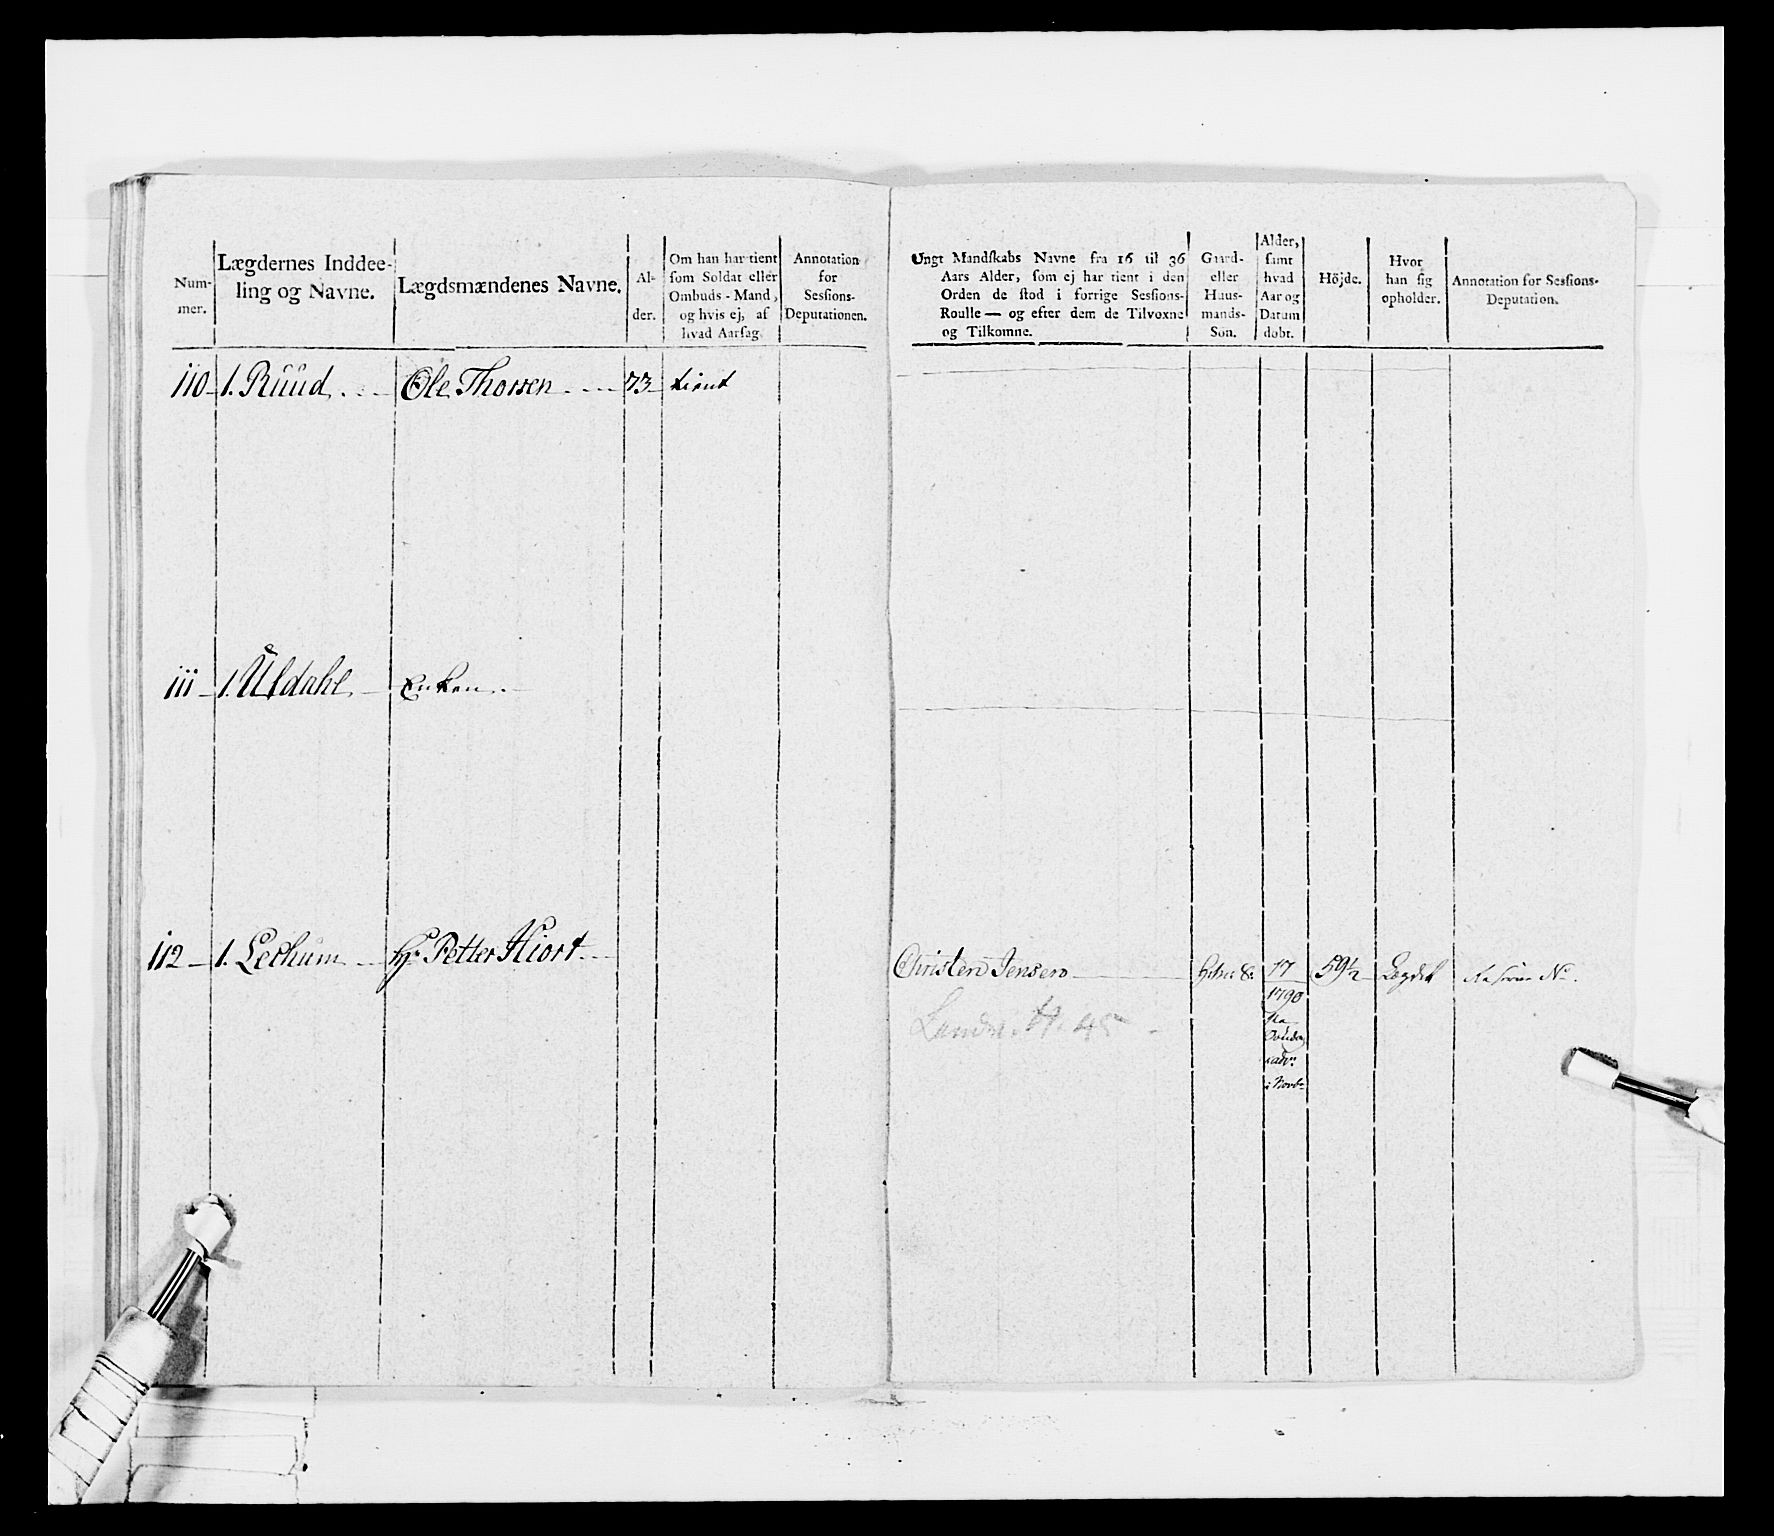 Num-
mer.
Lægdernes Inddee-
ling og Navne.
Lægdsmændenes Navne.
Al-
der.
Om han har tient
som Soldat eller
Ombuds-Mand,
og hvis ej, af
hvad Aarsag.
Annotation
for
Sessions-
Deputationen.
Ungt Mandskabs Navne fra 16 til 36
Aars Alder, som ej har tient i den
Orden de stod i forrige Sessions-
Roulle — og efter dem de Tilvoxne
og Tilkomne.
Gaard-
eller
Huus-
mands-
Søn.
Alder,
samt
hvad
Aar og
Datum
døbt.
Höjde.
Hvor
han sig
opholder.
Annotation for Sessions-
Deputation.
110 1. Ruud Ole Thorsen 73 tient
111 1. Uldahl Enken
112 1. Lechum Hr Petter Hiort
Christen Jensen 17 59½ Legdet No.
1790
H. 45
i Novbr